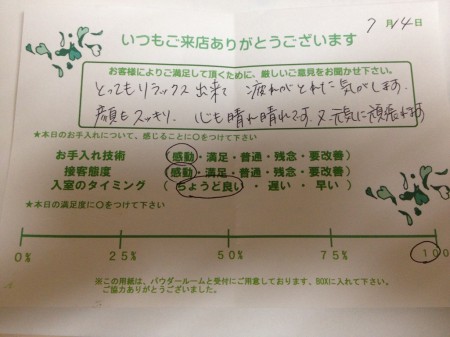 7月14日
いつもご来店ありがとうございます
お客様によりご満足して頂くために、厳しいご意見をお聞かせ下さい。
とってもリラックス出来て 疲れがとれた気がします。
顔もスッキリ、心も晴れ晴れです。又元気に頑張れます
★本日のお手入れについて、感じることに○をつけて下さい
お手入れ技術 (感動・満足・普通・残念・要改善)
接客態度 (感動・満足・普通・残念・要改善)
入室のタイミング (ちょうど良い・遅い・早い)
★本日の満足度に○をつけて下さい
0% 25% 50% 75% 100
※この用紙は、パウダールームと受付にご用意しております、BOXに入れて下さい。
ご協力ありがとうございました。